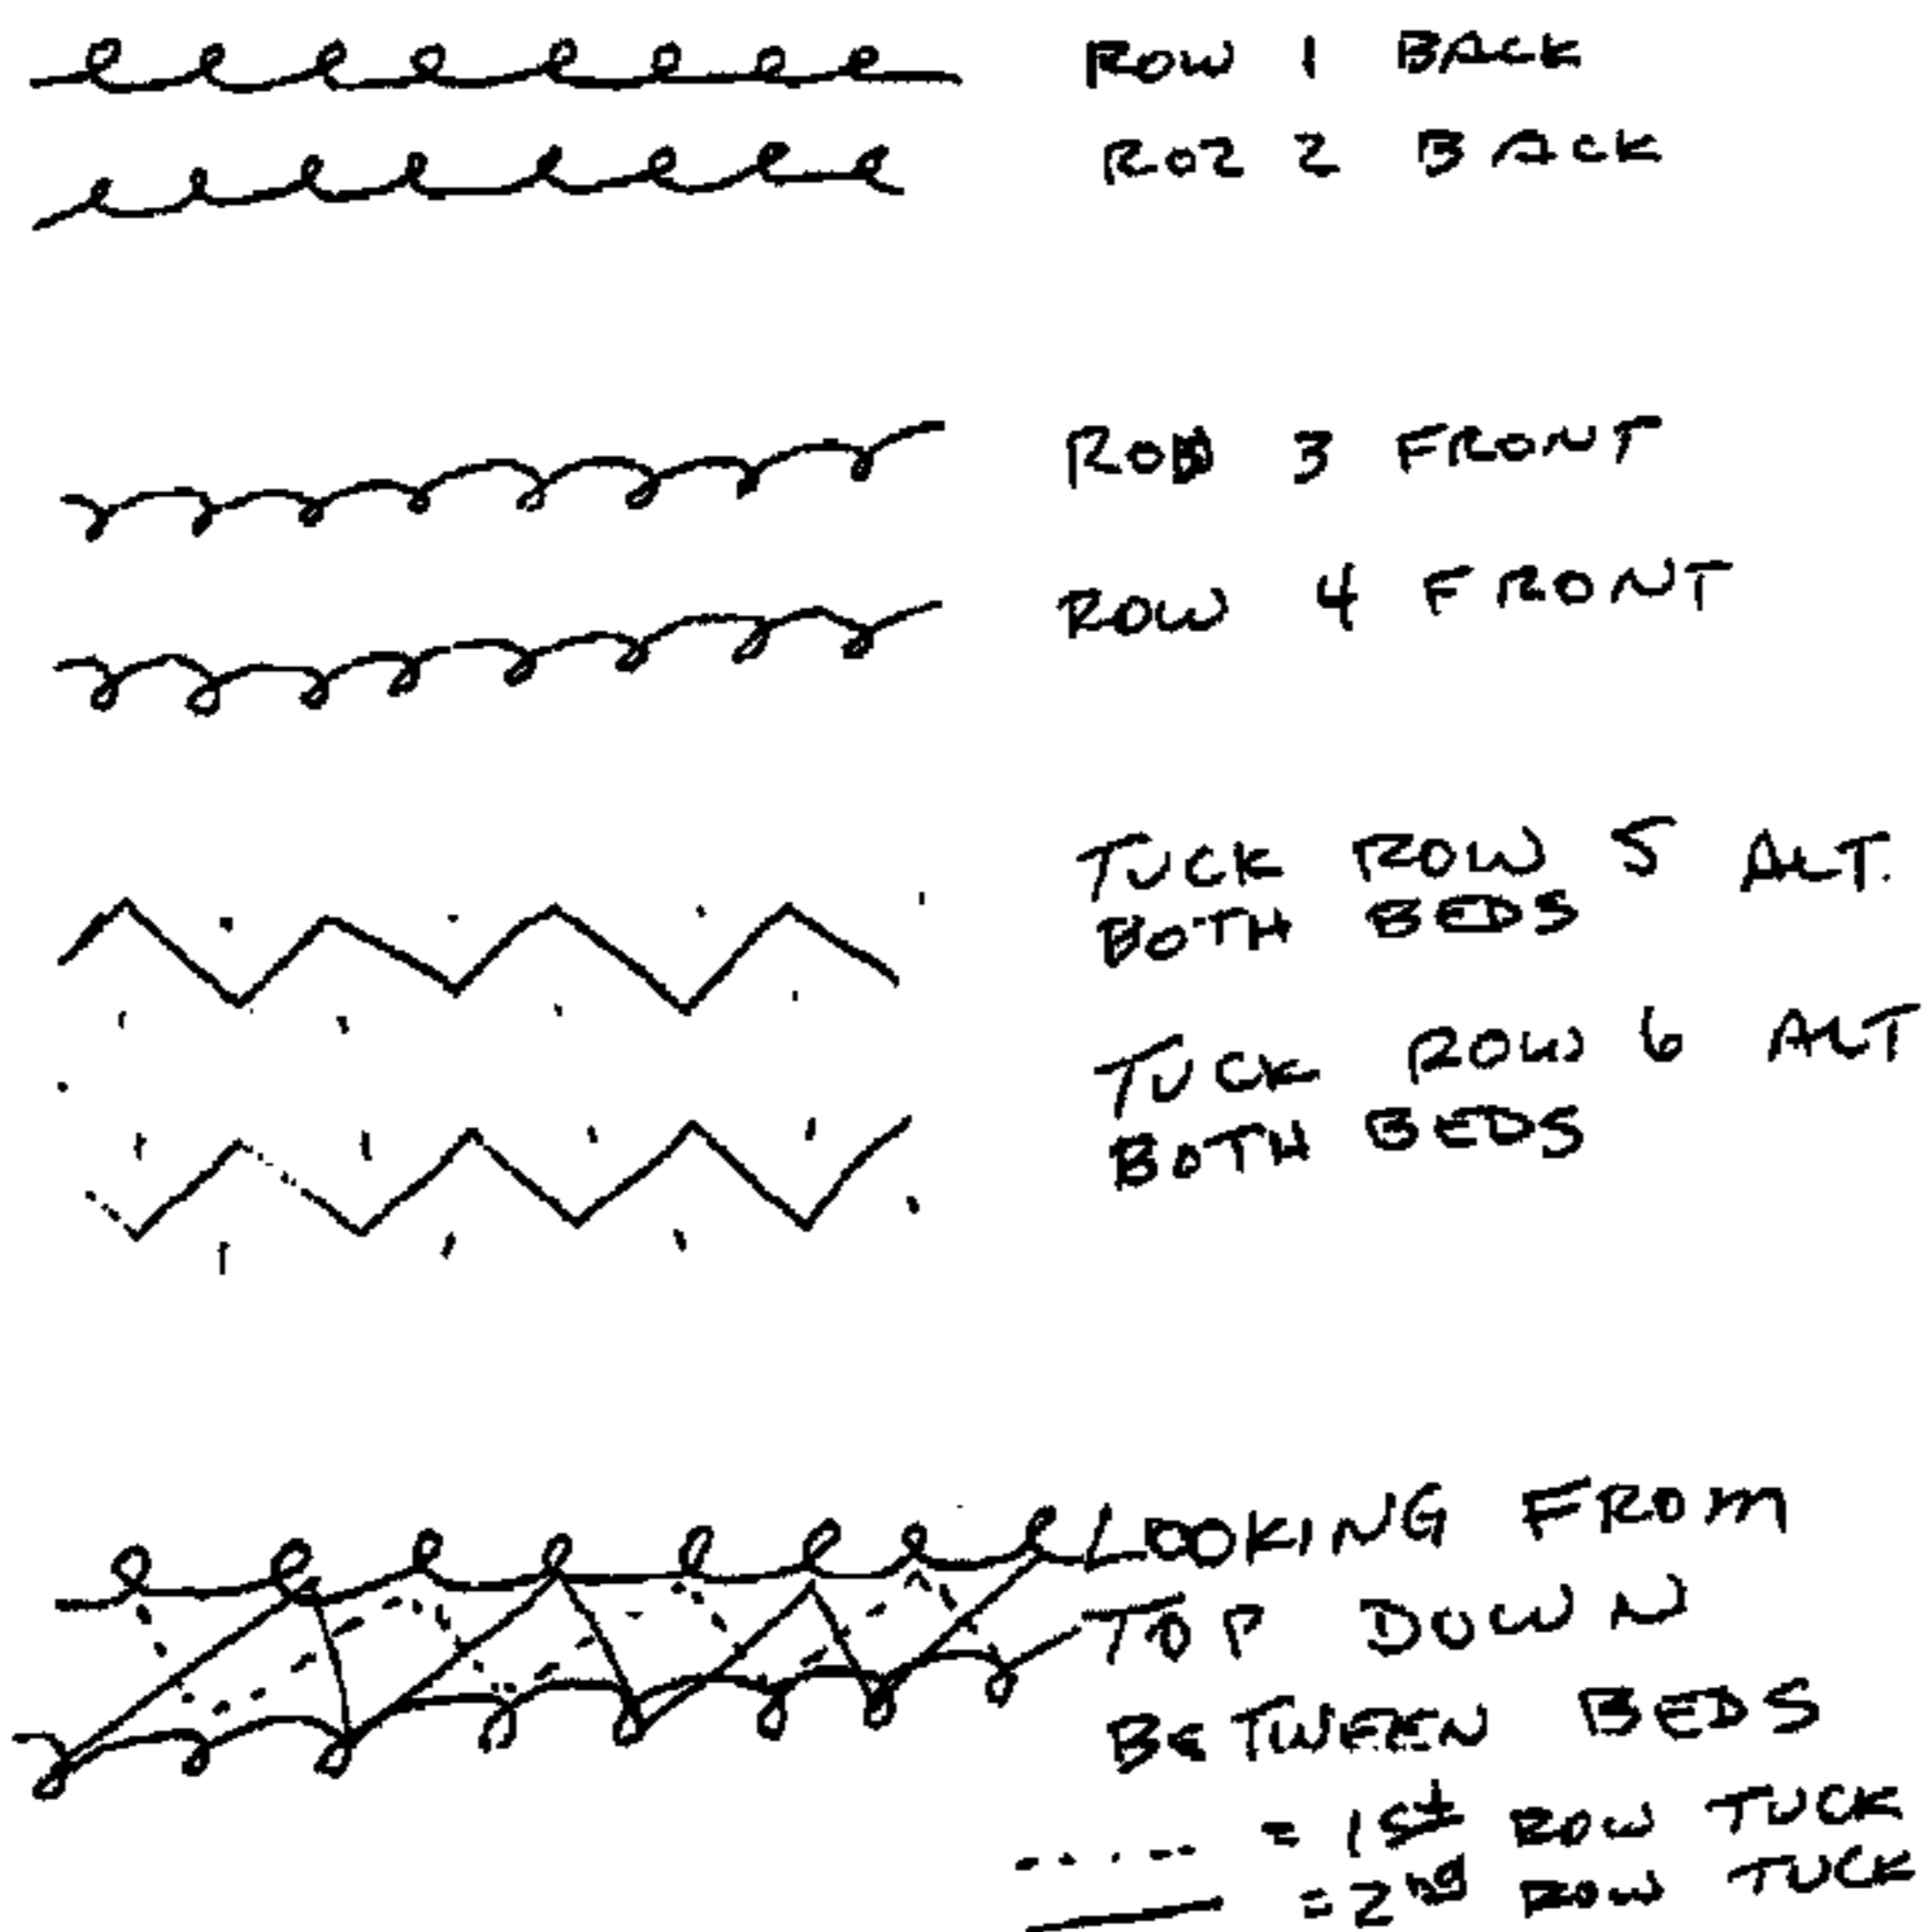 ROW 1 BACK
ROZ 2 BACK
ROB 3 FRONT
ROW 4 FRONT
TUCK ROW 5 ALT.
BOTH BEDS
TUCK ROW 6 ALT
BOTH BEDS
LOOKING FROM
TOP DOWN
BETWEEN BEDS
= 1st ROW TUCK
= 2nd ROW TUCK